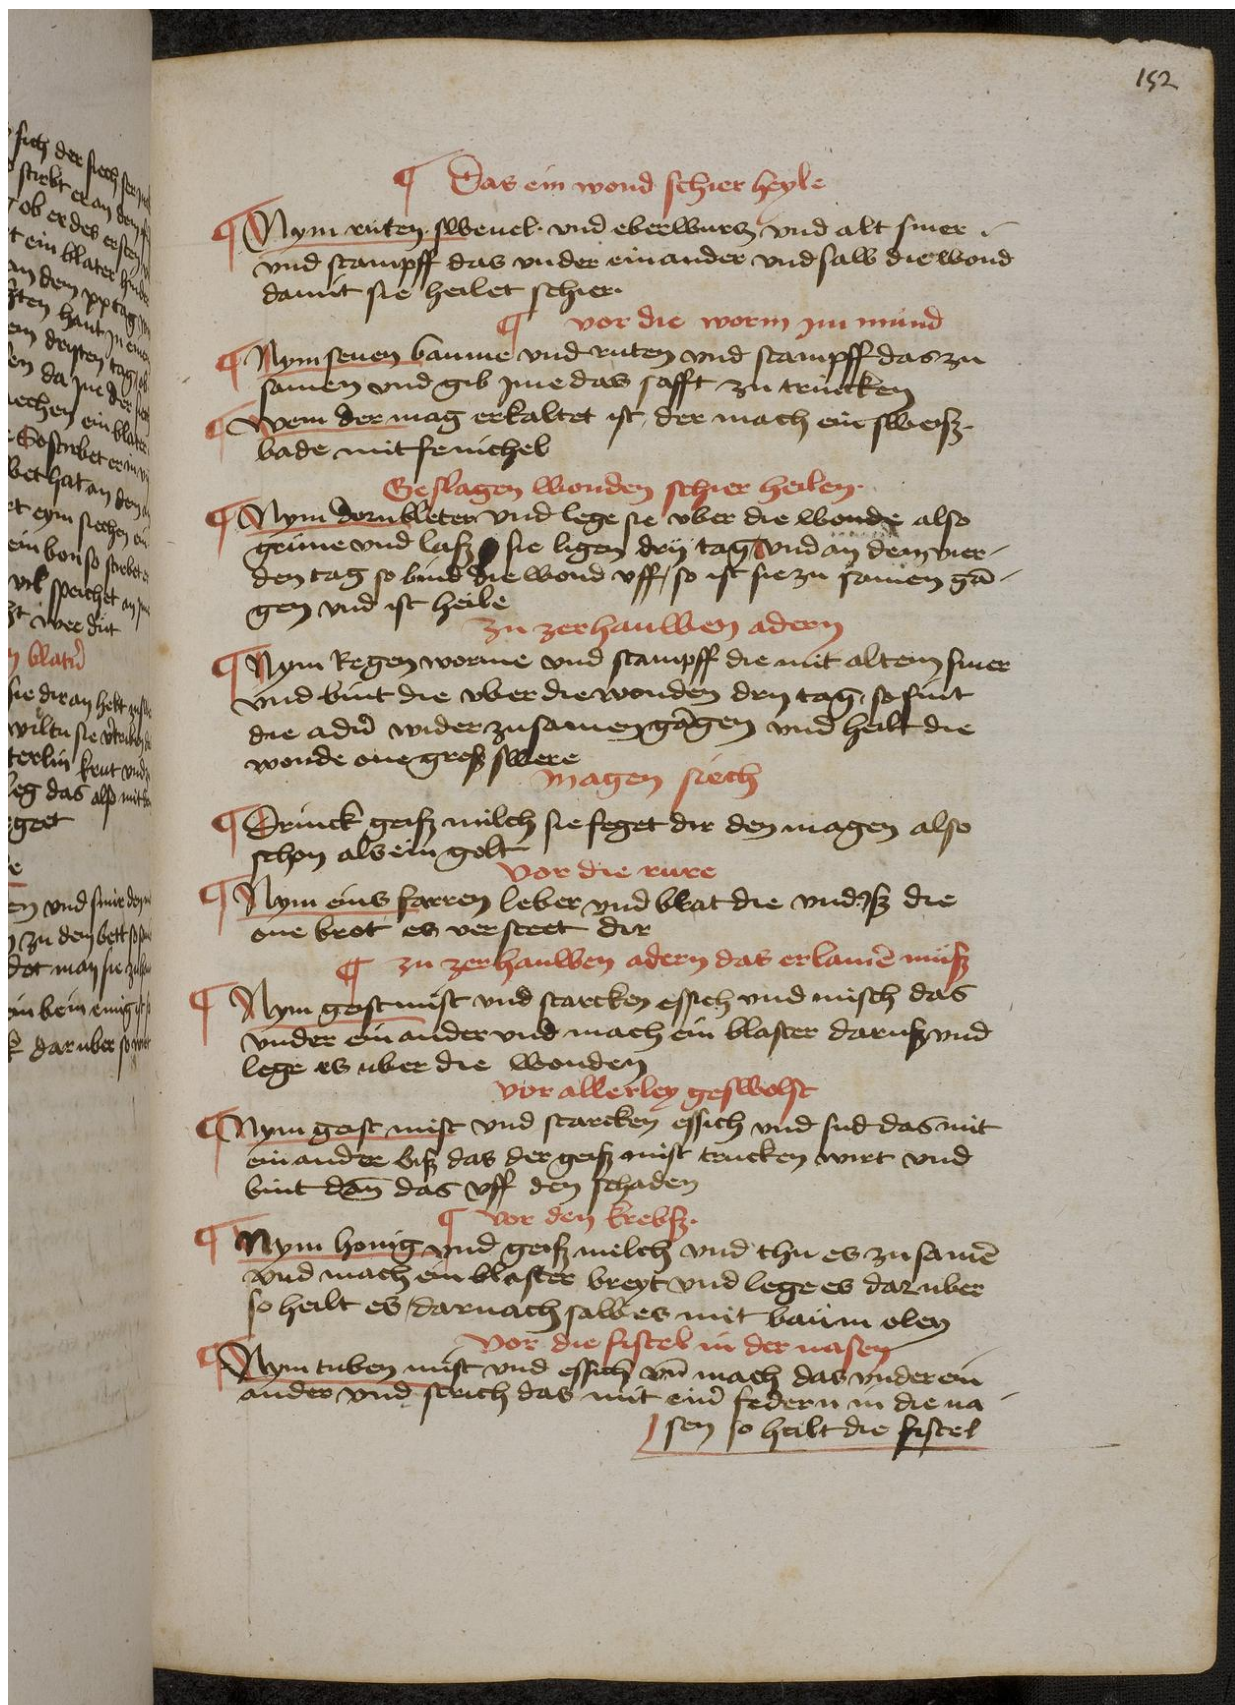 152
¶ Das ein wond schier heyle
¶ Nym ruten. swevel. vnd eberwurtz vnd alt smer
vnd stampff das vnder ein ander vnd salb die wond
damit sie heilet schier.
¶ vor die worm im mund
¶ Nym seuen baume vnd ruten vnd stampff das zu
samen vnd gib jme das safft zu trincken
¶ Wem der mag erkaltet ist, der mach ein sweisz
bade mit fenichel
Geslagen wonden schier heilen.
¶ Nym dornbleter vnd lege sie vber die wonde also
grune vnd lasz sie ligen drij tag vnd an dem vier-
den tag so bind die wond vff, so ist sie zu samen gā-
gen vnd ist heile
zu zerhauwen adern
¶ Nym Regen worme vnd stampff die mit altem smer
vnd bint die vber die wonden dry tag, so sint
die adn̄ wider zusamen gāgen vnd heilt die
wonde one grosz swere
magen siech
¶ Drinck geisz milch sie feget dir den magen also
schon als ein golt
vor die rure
¶ Nym eins farren leber vnd brat die vnd isz die
one brot es versteet dir
¶ zu zerhauwen adern das erlamē musz
¶ Nym geist mist vnd starcken essich vnd misch das
vnder ein ander vnd mach ein blaster darusz vnd
lege es uber die wonden
vor allerley geswolst
¶ Nym geist mist vnd starcken essich vnd sud das mit
ein ander bisz das der geisz mist trucken wirt vnd
bint dan̄ das vff den schaden
¶ vor den krebsz.
¶ Nym honig vnd geisz melch vnd thu es zu samē
vnd mach ein blaster breyt vnd lege es dar uber
so heilt es / darnach salb es mit baum olen
vor die fistel in der nasen
¶ Nym tuben mist vnd essich vn̄ mach das vnder ein
ander vnd strich das mit ein̄ federn in die na-
sen so heilt die fistel